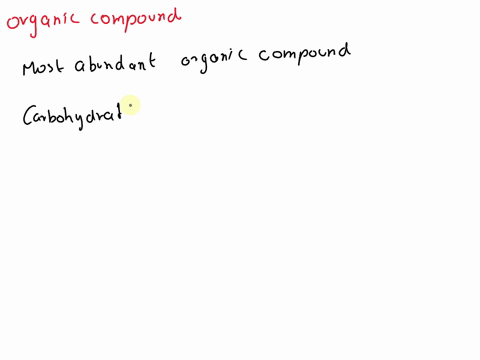 organic compound
Most abundant organic compound
Carbohydrat